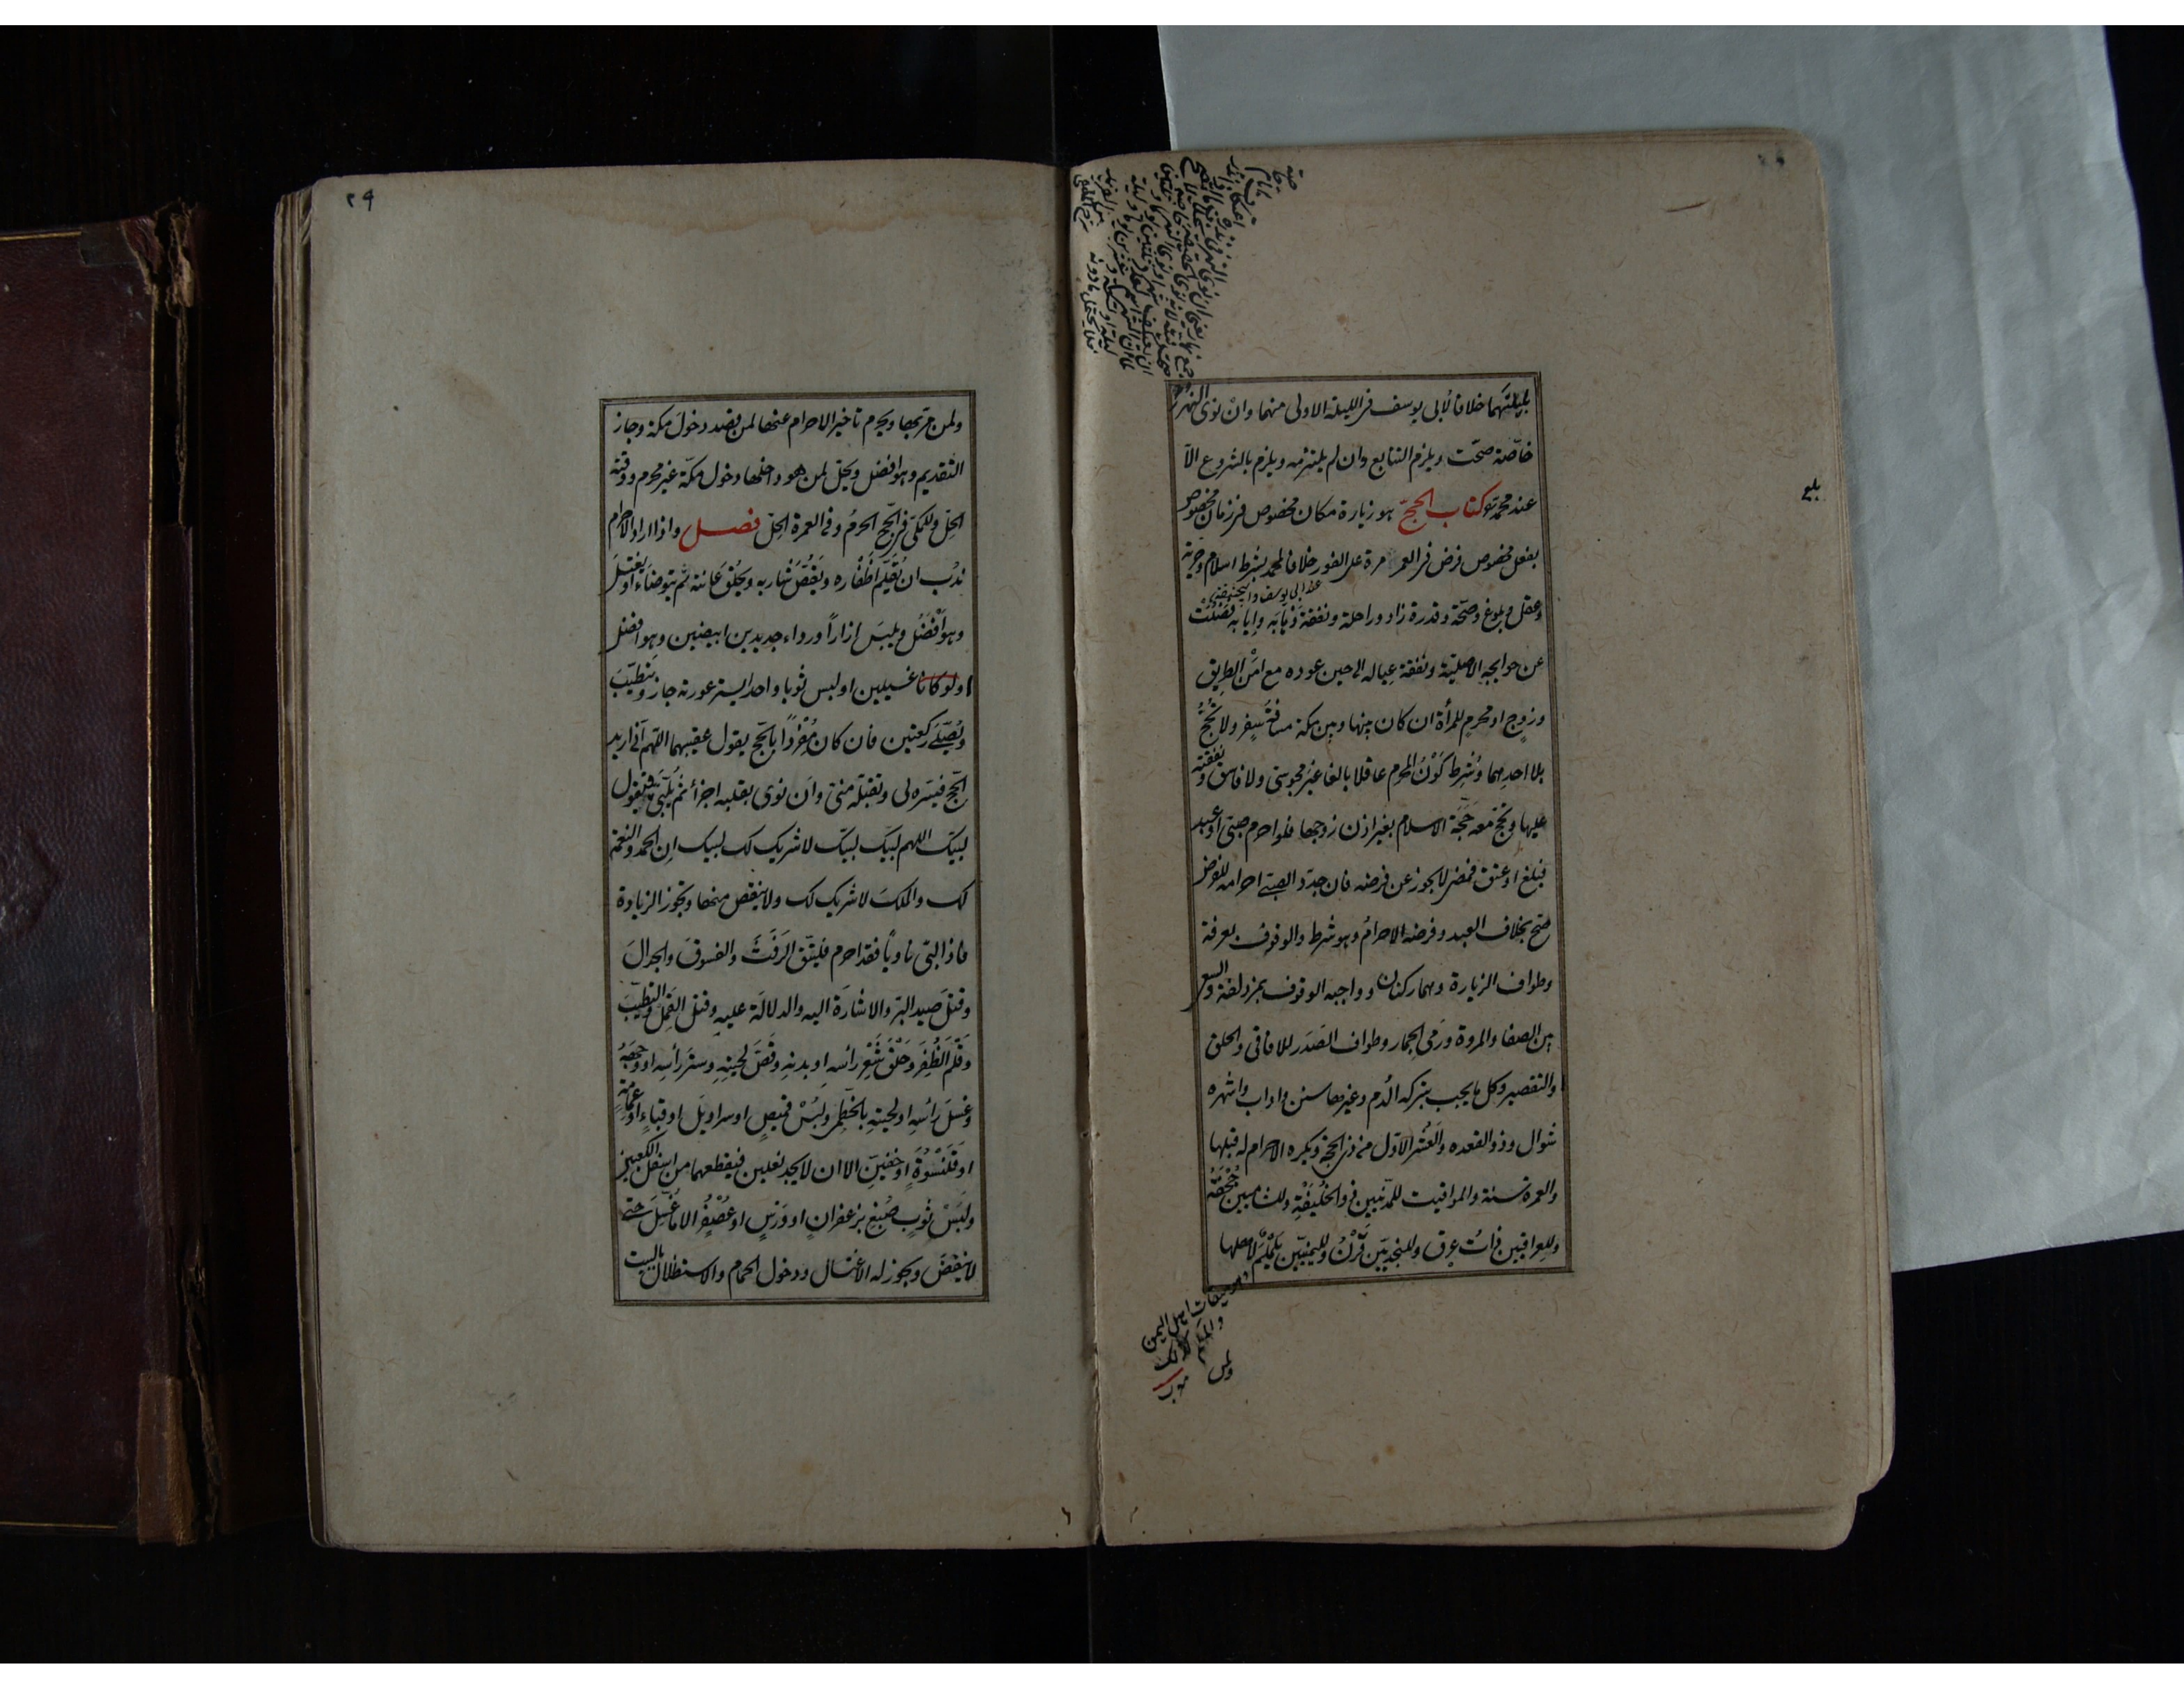 بليلتهما خلافا لأبى يوسف فى الليلة الاولى منهما وان نوى النهر
خاصّة صحّت ويلزم التتابع وان لم يلتزمه ويلزم بالشروع الّا
عند محمد كتاب الحج هو زيارة مكان مخصوص فى زمان مخصوص
بفعل مخصوص فرض فى العمر مرة على الفور خلافا لمحمد بشرط اسلام وحرية
عند ابى يوسف
وعقل وبلوغ وصحّة وقدرة زاد وراحلة ونفقة ذهابه وايابه فضلت
عن حوايجه الاصليّة ونفقة عياله الى حين عوده مع امن الطريق
وزوج او محرم للمرأة ان كان بينها وبين مكة مسافة سفر ولا تحجّ
بلا احدهما وشرط كون المحرم عاقلا بالغا غير مجوسى ولا فاسق ونفقته
عليها وتحج معه حجّة الاسلام بغير اذن زوجها فلو احرم صبىّ او عبد
فبلغ او عتق فمضى لا يجوز عن فرضه فان جدّد الصبىّ احرامه للفرض
صحّ بخلاف العبد وفرضه الاحرام وهو شرط والوقوف بعرفة
وطواف الزيارة وهما ركنان وواجبه الوقوف بمزدلفة والسعى
بين الصفا والمروة ورمى الجمار وطواف الصّدر للافاقى والحلق
والتقصير وكل ما يجب بتركه الدم وغيرها سنن واداب واشهره
شوال وذو القعده والعشر الاوّل من ذى الحجة ويكره الاحرام له قبلها
والعمرة سنة والمواقيت للمدنيين ذو الحليفة وللشاميين جحفة
وللعراقيين ذات عرق وللنجديّين قرن ولليمنيّين يلملم لاهلها
ميقات اهل اليمن
بلغ
٢٩
ولمن مرّ بها ويحرم تاخير الاحرام عنها لمن قصد دخول مكة وجاز
التقديم وهو افضل ويحلّ لمن هو داخلها دخول مكّة غير محرم ووقته
الحلّ وللمكّى فى الحجّ الحرم وفى العمرة الحلّ فصل واذا اراد الاحرام
ندب ان يقلّم اظفاره ويقصّ شاربه ويحلق عانته ثم يتوضاء او يغتسل
وهو افضل ويلبس ازاراً ورداء جديدين ابيضين وهو افضل
ولو كانا غسيلين او لبس ثوبا واحدا يستر عورته جاز ويتطيّب
ويصلّى ركعتين فان كان مفرداً بالحّج يقول عقيبهما اللّهم انى اريد
الحّج فيسّره لى وتقبّله منّى وان نوى بقلبه اجزأ ثم يلبّى فيقول
لبيّك اللهم لبيّك لبيّك لا شريك لك لبيك ان الحمد والنعمة
لك والملك لا شريك لك ولا ينقص منها وتجوز الزيادة
فاذا لبّى ناوياً فقد احرم فليتّق الرفث والفسوق والجدال
وقتل صيد البرّ والاشارة اليه والدلالة عليه وقتل القمل والتطيّب
وقلم الظفر وحلق شعر رأسه او بدنه وقصّ لحيته وستر رأسه او وجهه
وغسل رأسه او لحيته بالخطمى ولبس قميص او سراويل او قباء او عمامة
او قلنسوة او خفيّن الا ان لا يجد نعلين فيقطعهما من اسفل الكعبين
ولبس ثوب صبغ بزعفران او ورس او عصفر الا ما غسل حتى
لا ينفض ويجوز له الاغتسال ودخول الحمام والاستظلال بالبيت